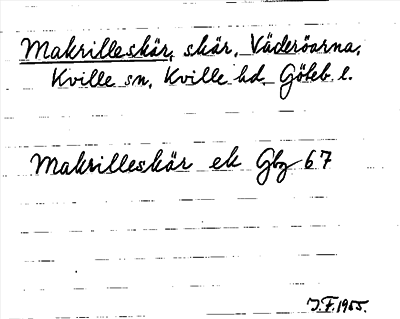 Makrilleskär, skär, Väderöarna,
Kville sn, Kville hd, Göteb. l.
Makrilleskär ek Gbg 67
J.F. 1955.